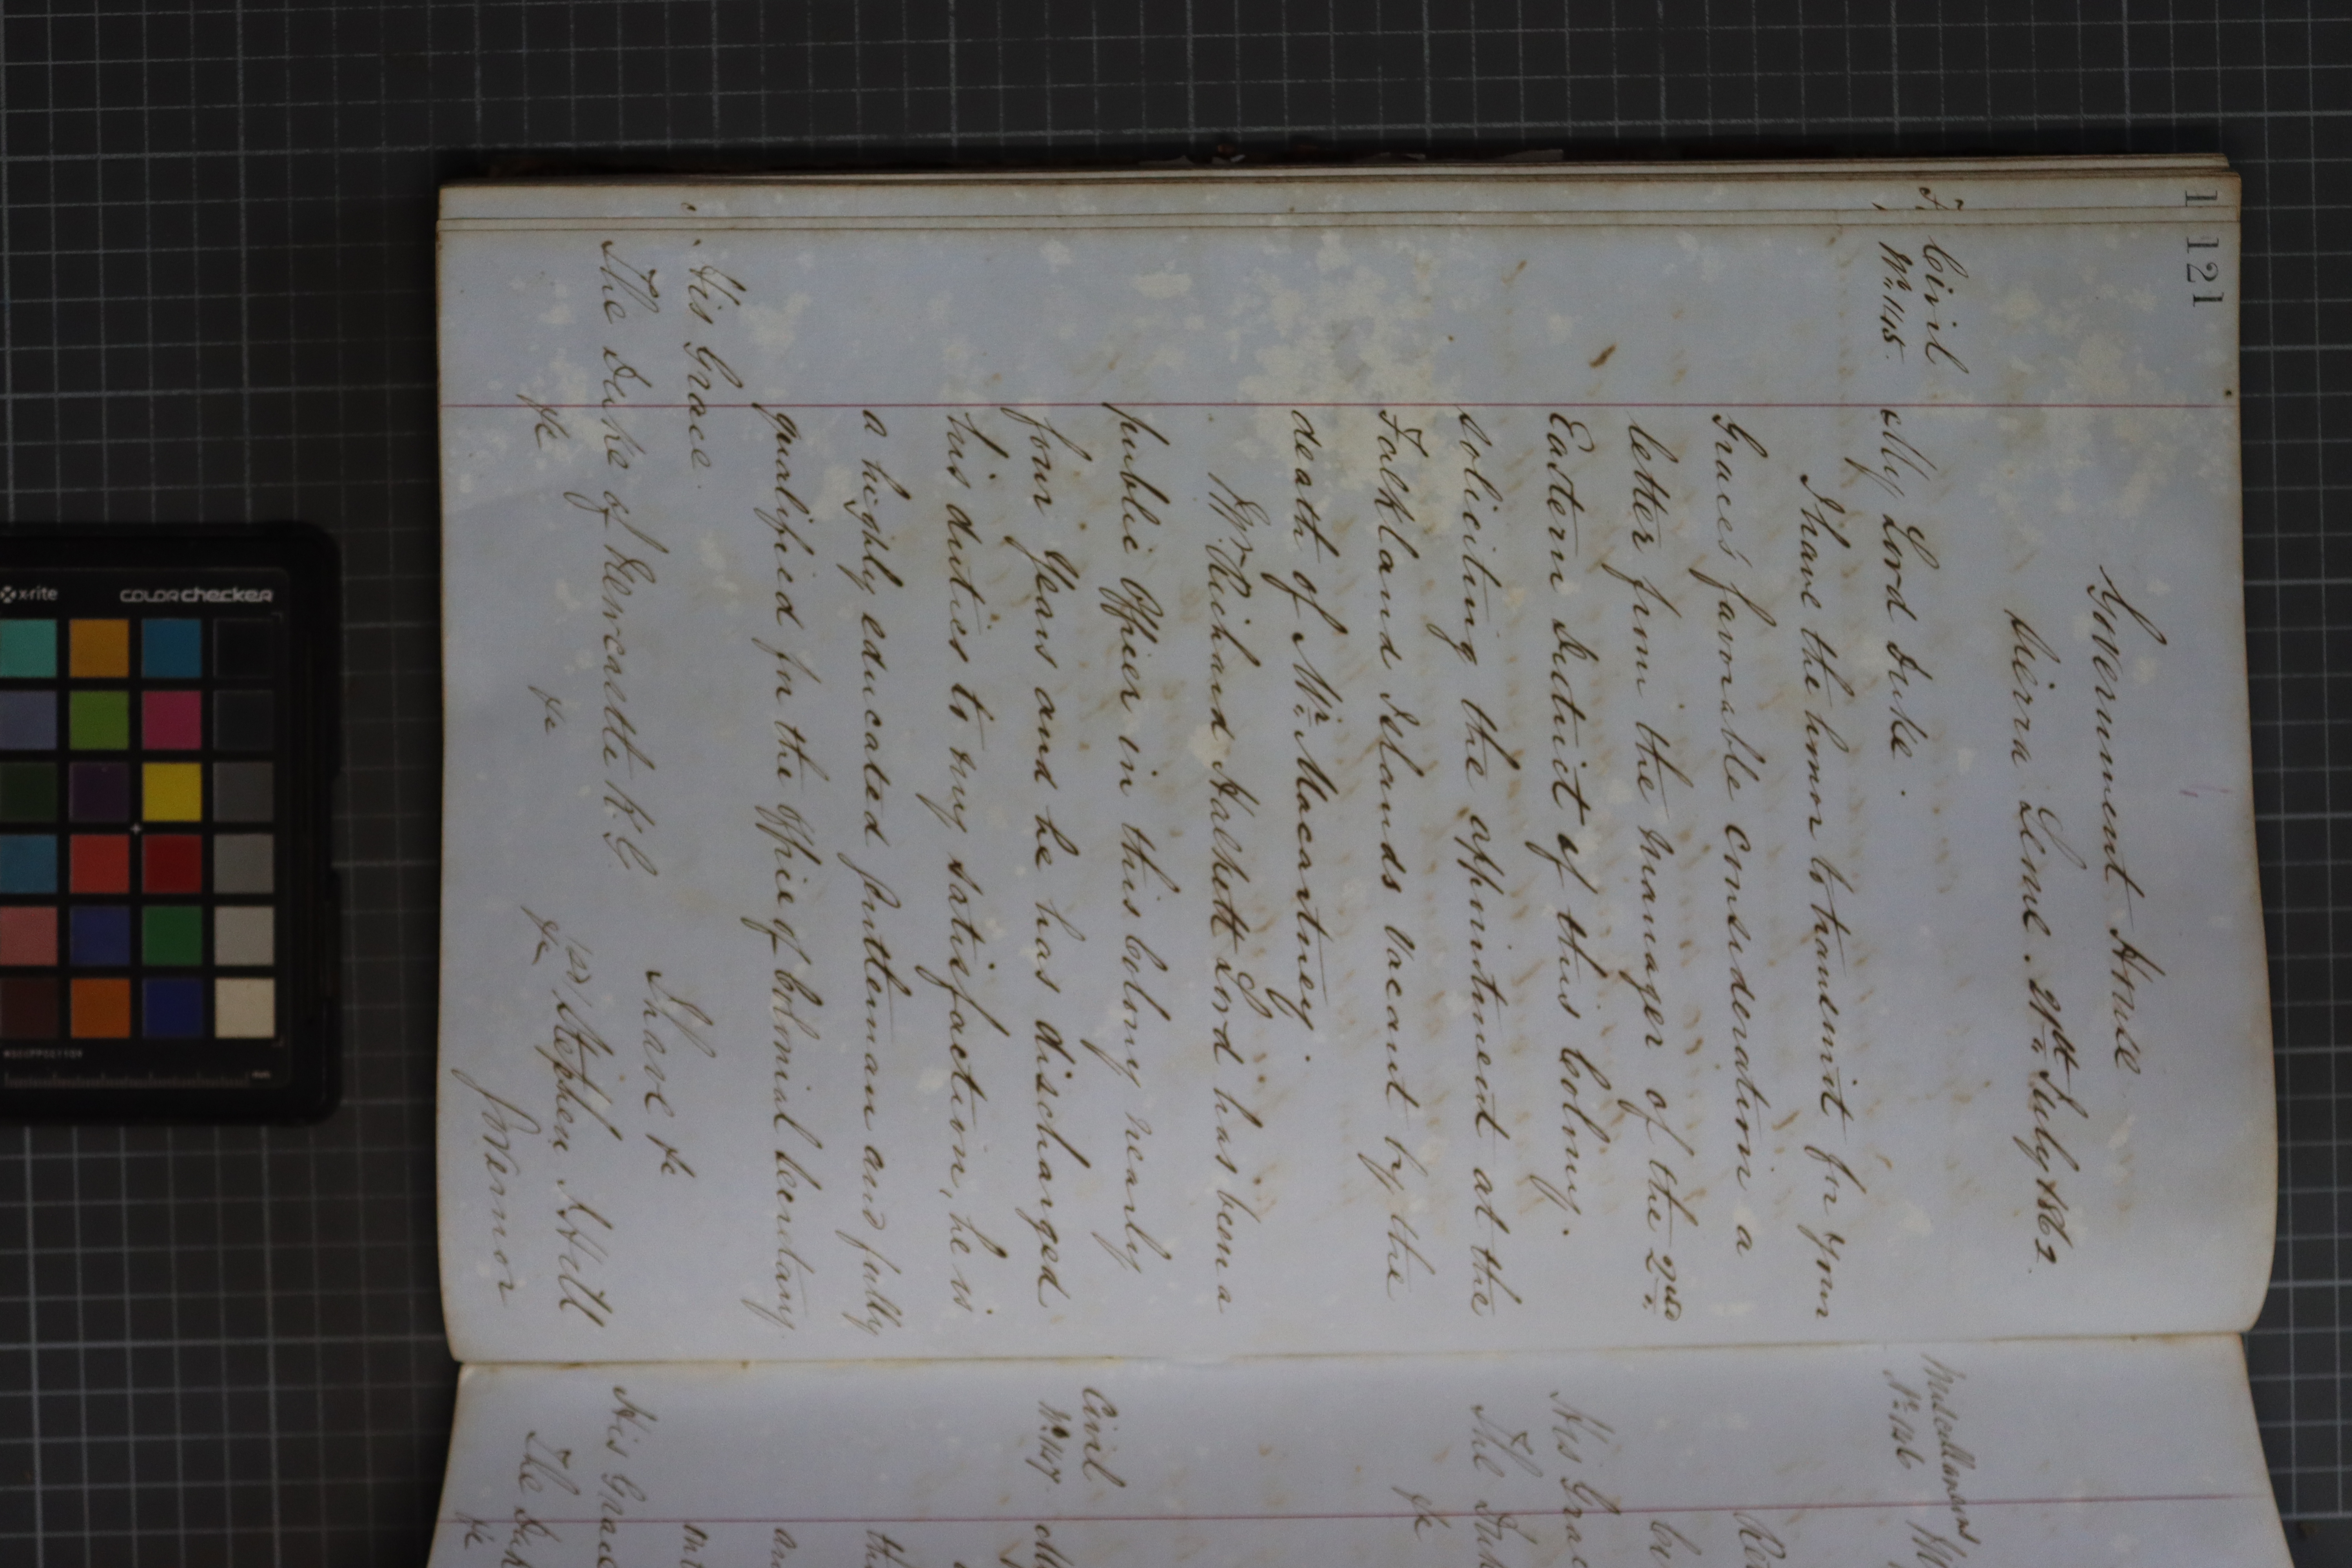 121
Government House
Sierra Leone. 21st. July 1862.
Civil
No. 115.
My Lord Duke.
I have the honor to transmit for your
Grace's favorable consideration a
letter from the Manager of the 2nd.
Eastern District of this Colony.
soliciting the appointment at the
Falkland Islands vacant by the
death of Mr. Macartney.
Mr. Richard Lord has been a
public Officer in this Colony nearly
four Years and he has discharged
his duties to my satisfaction, he is
a highly educated gentleman and fully
qualified for the Office of Colonial Secretary.
I have &c
(sd) Stephen J Hill
Governor
His Grace
The Duke of Newcastle K.G
&c &c &c
Miscellaneous
No. 116
His Grac
The Duk
&c
Civil
No. 117.
His Grace
The Duk
&c